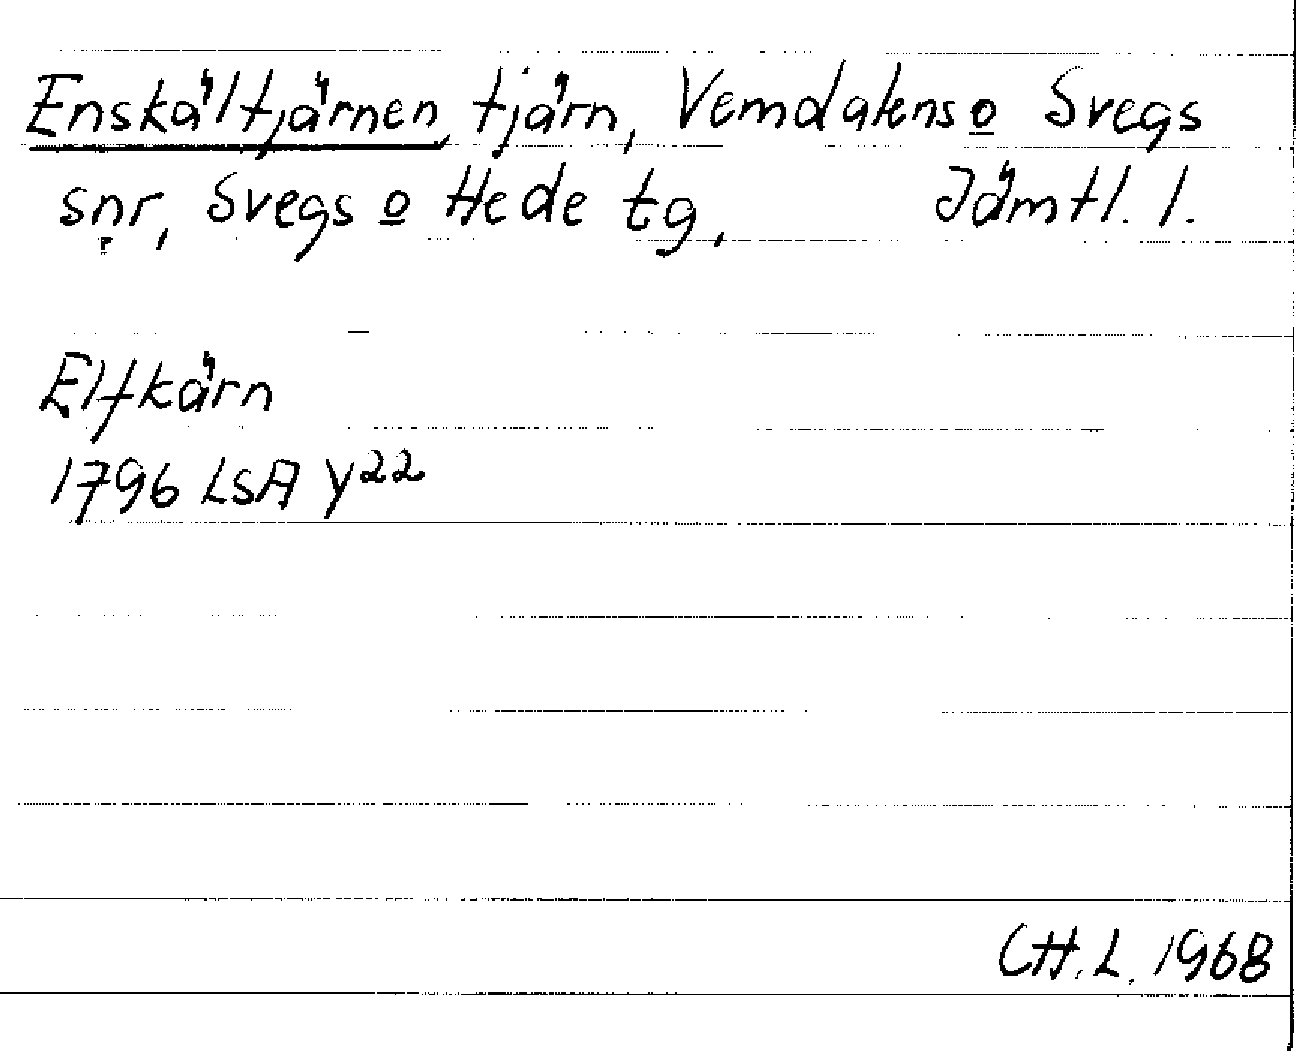 Enskältjärnen, tjärn, Vemdalens o Svegs
snr, Svegs o Hede tg, Jämtl. l.
Elfkärn
1796 LSA Y22
CH.L. 1968